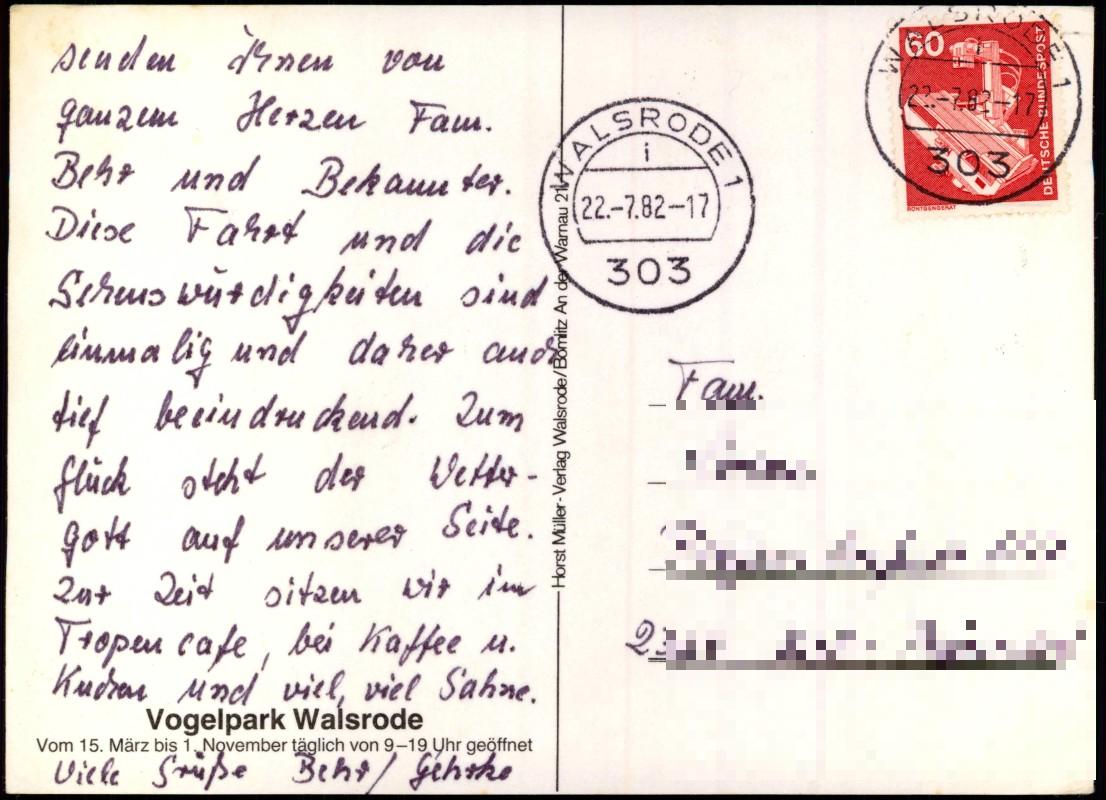 senden Ihnen von
ganzem Herzen Fam.
Behr und Bekannter.
Diese Fahrt und die
Sehenswürdigkeiten sind
einmalig und daher auch
tief beeindruckend. Zum
Glück steht der Wetter-
gott auf unserer Seite.
Zur Zeit sitzen wir im
Tropencafe, bei Kaffee u.
Kuchen und viel, viel Sahne.
Vogelpark Walsrode
Vom 15. März bis 1. November täglich von 9–19 Uhr geöffnet
Viele Grüße Behr/Gehrke
Horst Müller-Verlag Walsrode/Bomlitz An der Warnau 21
WALSRODE 1
i
22.-7.82-17
303
60
DEUTSCHE BUNDESPOST
RÖNTGENGERÄT
WALSRODE 1
22.-7.82-17
303
Fam.
23